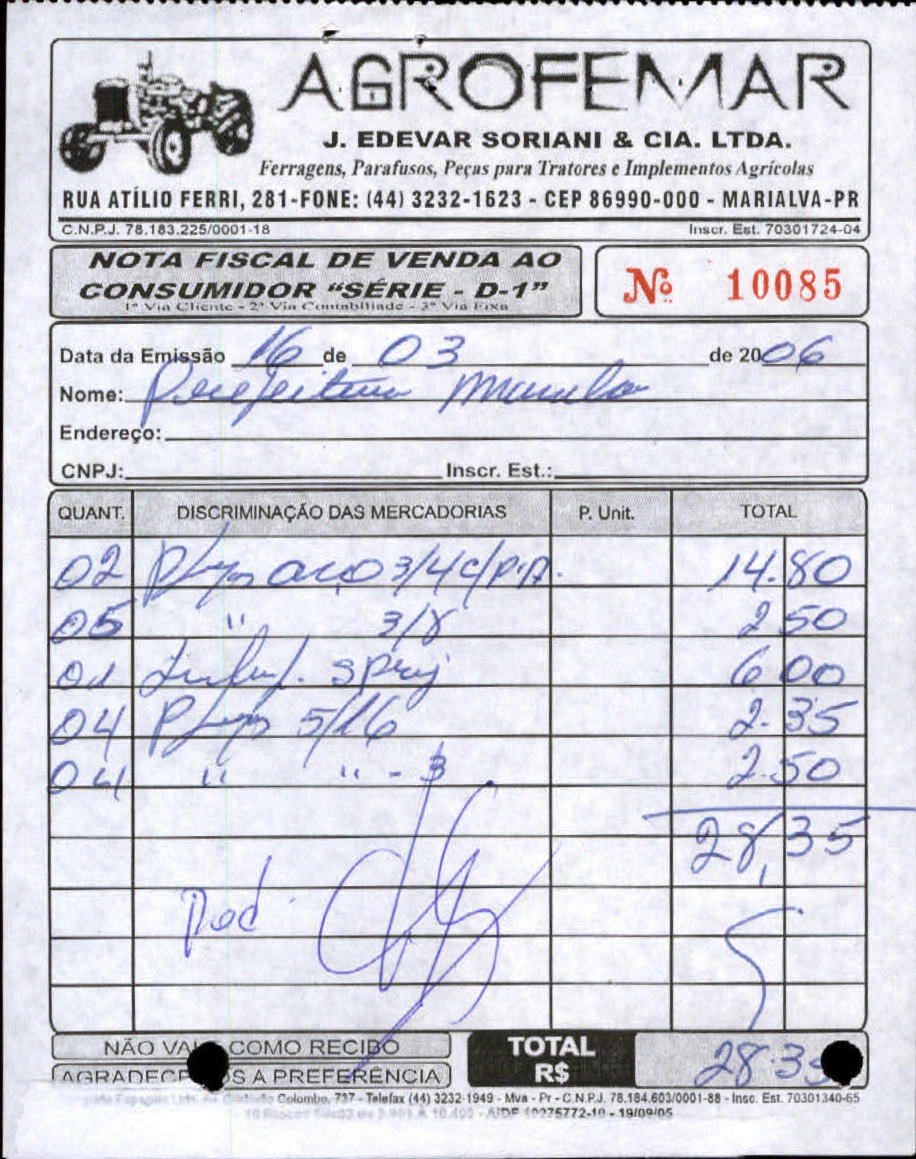 AGROFEMAR
J. EDEVAR SORIANI & CIA. LTDA.
Ferragens, Parafusos, Peças para Tratores e Implementos Agrícolas
RUA ATÍLIO FERRI, 281-FONE: (44) 3232-1623 - CEP 86990-000 - MARIALVA-PR
C.N.P.J. 78.183.225/0001-18 Inscr. Est. 70301724-04
NOTA FISCAL DE VENDA AO
CONSUMIDOR “SÉRIE - D-1”
1ª Via Cliente - 2ª Via Contabilidade - 3ª Via Fixa
Nº 10085
Data da Emissão 16 de 03 de 2006
Nome: Prefeitura
Endereço:
CNPJ: Inscr. Est.:
QUANT. DISCRIMINAÇÃO DAS MERCADORIAS P. Unit. TOTAL
02 aço 3/4 c/ 14.80
05 " 3/8 2 50
01 6 00
04 5/16 2.35
04 " " - 2.50
28,35
NÃO VALE COMO RECIBO
AGRADECEMOS A PREFERÊNCIA
TOTAL R$ 28.35
Colombo, 737 - Telefax (44) 3232-1949 - Mva - Pr - C.N.P.J. 78.184.603/0001-88 - Insc. Est. 70301340-65
- 19/09/05